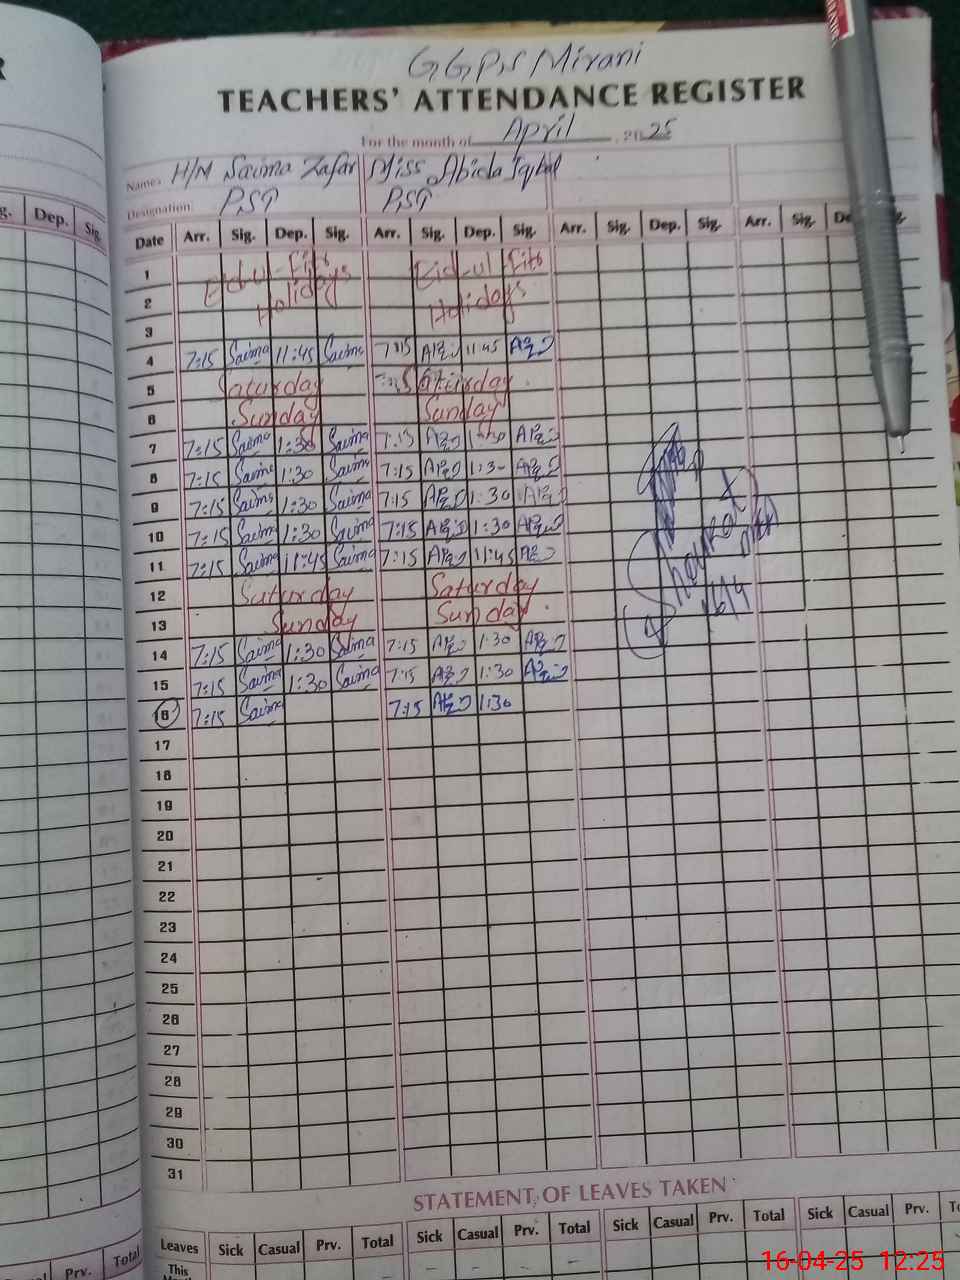 GGPS Mirani
TEACHERS' ATTENDANCE REGISTER
For the month of April, 2025
Name: H/M Saima Zafar Miss Abida Iqbal
Designation: PST PST
g. Dep. Sig.
Date Arr. Sig. Dep. Sig. Arr. Sig. Dep. Sig. Arr. Sig. Dep. Sig. Arr. Sig.
1 Eid-ul-Fitr Eid-ul Fitr
2 Holidays Holidays
3
4 7:15 Saima 11:45 Saima 7:15 11:45
5 Saturday Saturday
6 Sunday Sunday
7 7:15 Saima 1:30 Saima 7:15 1:30
8 7:15 Saima 1:30 Saima 7:15 1:3
9 7:15 Saima 1:30 Saima 7:15 1:30
10 7:15 Saima 1:30 Saima 7:15 1:30
11 7:15 Saima 11:45 Saima 7:15 11:45
12 Saturday Saturday
13 Sunday Sunday
14 7:15 Saima 1:30 Saima 7:15 1:30
15 7:15 Saima 1:30 Saima 7:15 1:30
16 7:15 Saima 7:15 1:30
17
18
19
20
21
22
23
24
25
26
27
28
29
30
31
16/4
STATEMENT OF LEAVES TAKEN
Leaves Sick Casual Prv. Total Sick Casual Prv. Total Sick Casual Prv. Total Sick Casual Prv.
This
Prv. Total
16-04-25 12:25